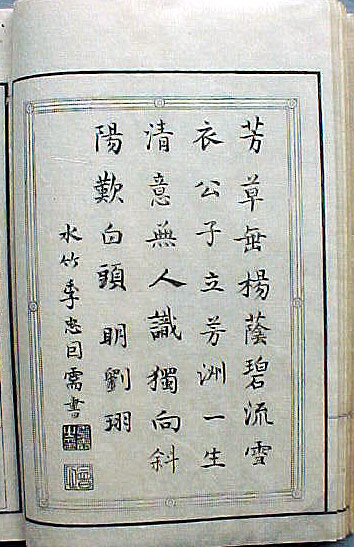 芳草垂楊蔭碧流雪
衣公子立芳洲一生
清意無人識獨向斜
陽歎白頭 明劉珝
水竹李忠書